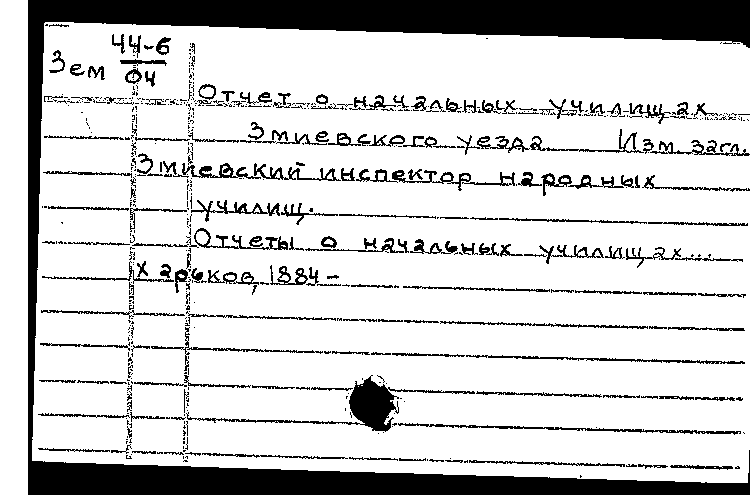 Зем 44-6
04
Отчет о начальных училищах
Змиевского уезда Изм. загл.
Змиевский инспектор народных
училищ.
Отчеты о начальных училищах...
Харьков, 1884 –